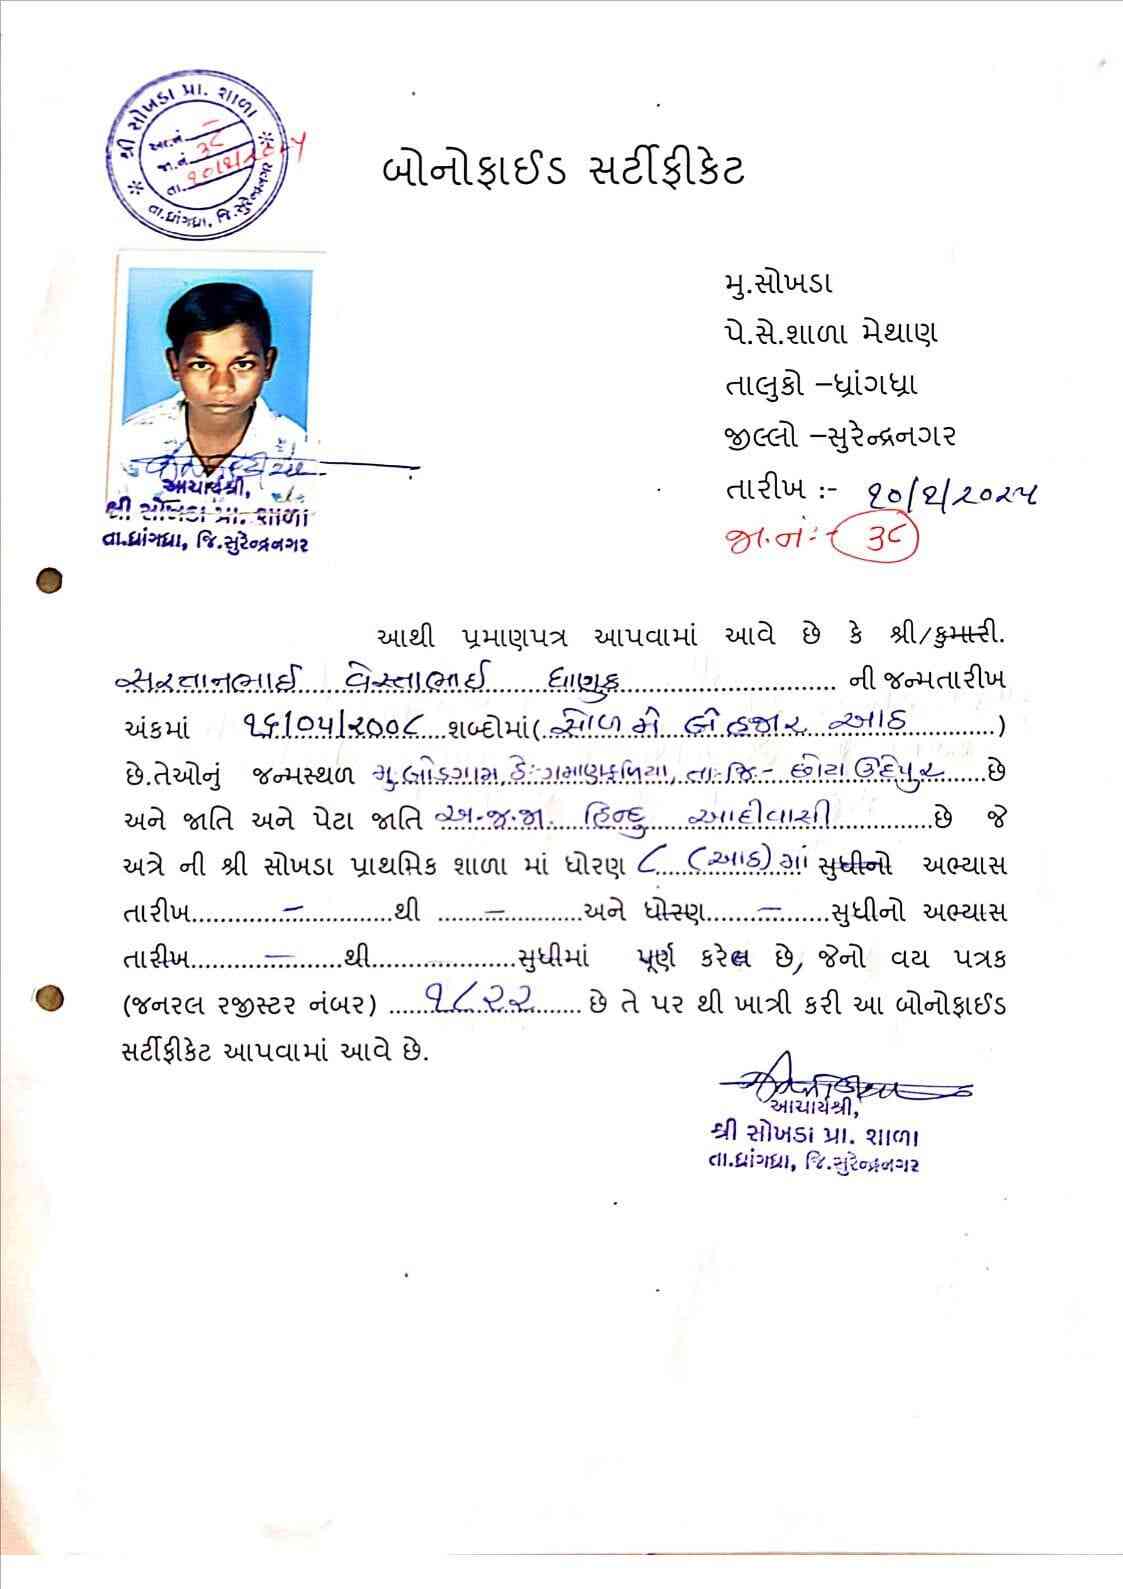 શ્રી સોખડા પ્રા. શાળા
આ.નં. –
જા.નં. ૩૮
તા. ૧૦/૨/૨૦૨૫
તા.ધ્રાંગધ્રા, જિ.સુરેન્દ્રનગર
બોનોફાઈડ સર્ટીફીકેટ
મુ.સોખડા
પે.સે.શાળા મેથાણ
તાલુકો –ધ્રાંગધ્રા
જીલ્લો –સુરેન્દ્રનગર
તારીખ :- ૧૦/૨/૨૦૨૫
જા.નં:- ૩૮
આચાર્યશ્રી,
શ્રી સોખડા પ્રા. શાળા
તા.ધ્રાંગધ્રા, જિ.સુરેન્દ્રનગર
આથી પ્રમાણપત્ર આપવામાં આવે છે કે શ્રી/કુમારી.
સરતાનભાઈ વેસ્તાભાઈ ધાણુક ની જન્મતારીખ
અંકમાં ૧૬/૦૫/૨૦૦૮ શબ્દોમાં(સોળ મે બે હજાર આઠ)
છે.તેઓનું જન્મસ્થળ મુ.બોડગામ, ઠે:-ગમાણફળિયા, તા.જિ- છોટા ઉદેપુર છે
અને જાતિ અને પેટા જાતિ અ.જ.જા. હિન્દુ આદીવાસી છે જે
અત્રે ની શ્રી સોખડા પ્રાથમિક શાળા માં ધોરણ ૮ (આઠ)માં સુધીનો અભ્યાસ
તારીખ – થી – અને ધોરણ – સુધીનો અભ્યાસ
તારીખ – થી સુધીમાં પૂર્ણ કરેલ છે, જેનો વય પત્રક
(જનરલ રજીસ્ટર નંબર) ૧૮૨૨ છે તે પર થી ખાત્રી કરી આ બોનોફાઈડ
સર્ટીફીકેટ આપવામાં આવે છે.
આચાર્યશ્રી,
શ્રી સોખડા પ્રા. શાળા
તા.ધ્રાંગધ્રા, જિ.સુરેન્દ્રનગર